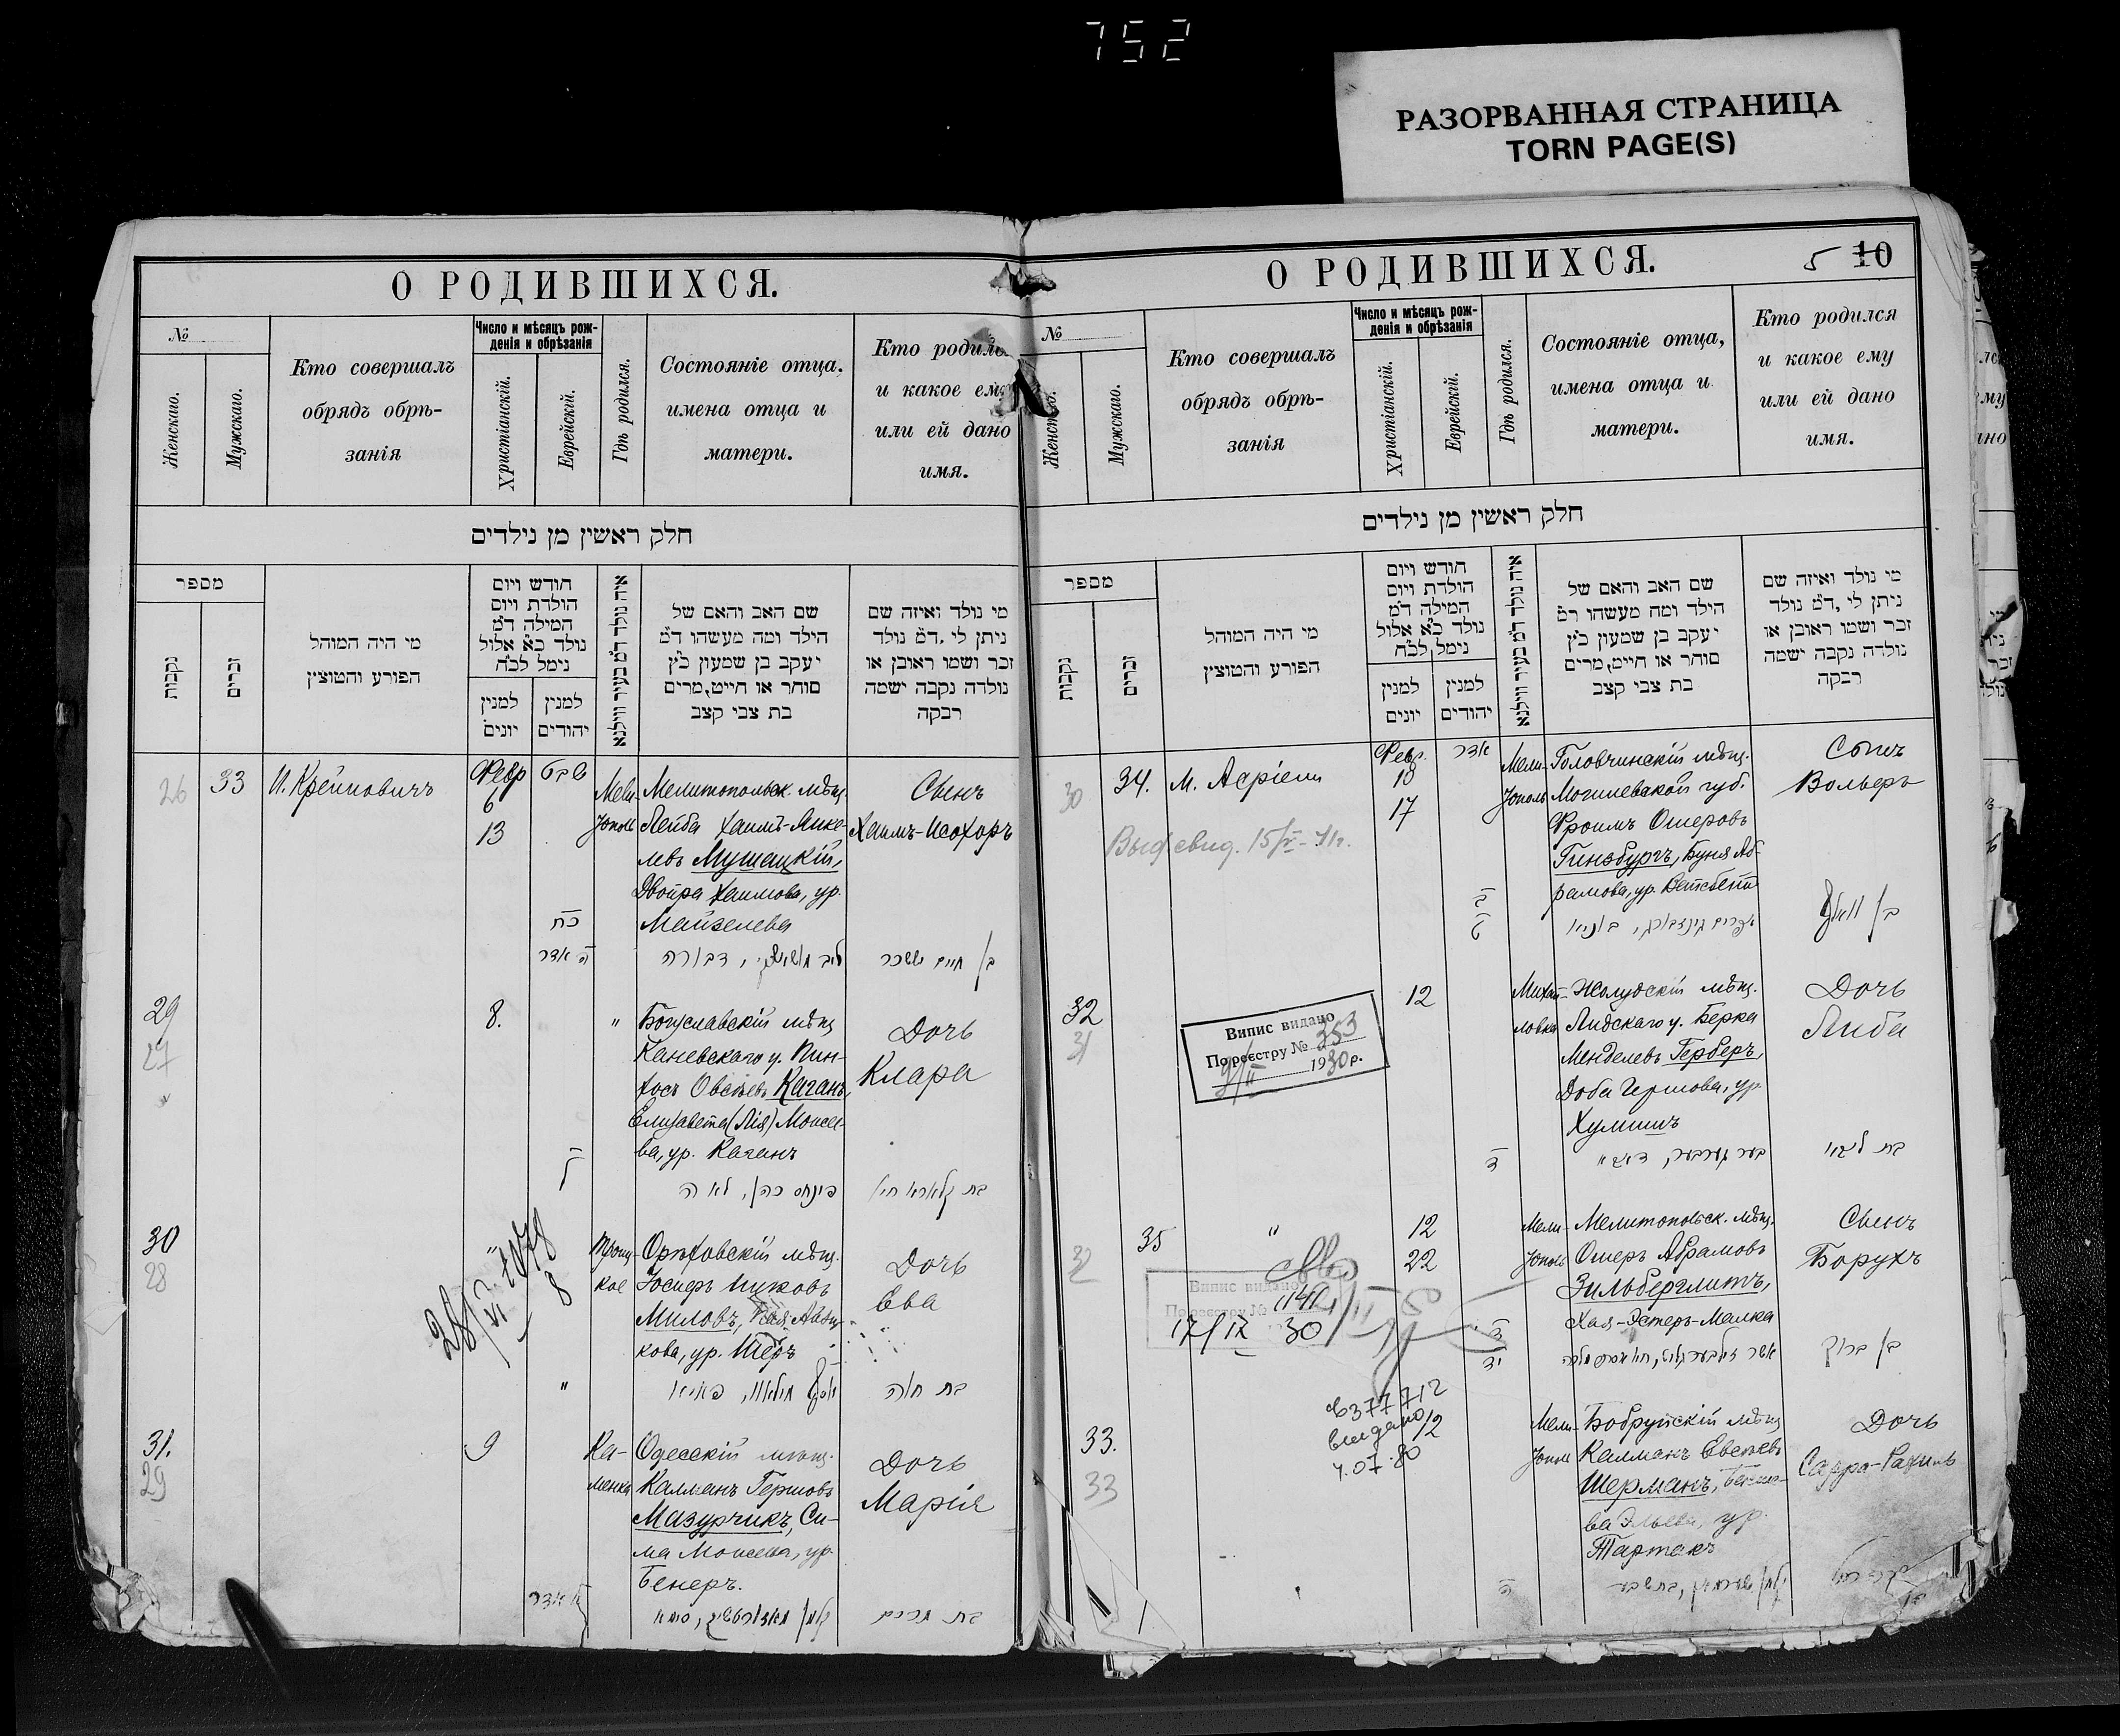 752
РАЗОРВАННАЯ СТРАНИЦА
TORN PAGE(S)
О РОДИВШИХСЯ.
№
Женскаго.
Мужскаго.
Кто совершалъ
обрядъ обрѣ-
занія
Число и мѣсяцъ рож-
денія и обрѣзанія
Христіанскій.
Еврейскій.
Гдѣ родился.
Состояніе отца,
имена отца и
матери.
Кто родилс
и какое ем
или ей дано
имя.
חלק ראשין מן נילדים
מספר
נקבות
זכרים
מי היה המוהל
הפורע והמוצץ
חודש ויום
הולדת ויום
המילה ד"מ
נולד כ"א אלול
נימל לכ"ח
למנין
יונים
למנין
יהודים
איה נולד ד"מ בעיר ווילנא
שם האב והאם של
הילד ומה מעשהו ד"מ
יעקב בן שמעון כ"ץ
סוחר או חייט, מרים
בת צבי קצב
מי נולד ואיזה שם
ניתן לי, ד"מ נולד
זכר ושמו ראובן או
נולדה נקבה ישמה
רבקה
26 33 И. Крейновичъ Февр שבט
6
13
Мели-
тополь
Мелитопольск. мѣщ.
Лейба Хаимъ-Янке-
левъ Мушацкій,
Двойра Хаимова, ур.
Майзелева
Сынъ
Хаимъ-Исохоръ
כח
ה אדר
דבורה
בן חיים יששכר
29
27
8.
"
Богуславскій мѣщ
Каневскаго у. Пин-
хосъ Овсѣевъ Каганъ,
Елизавета (Лія) Моисее-
ва, ур. Каганъ
Дочь
Клара
ז
פינחס כהן, לאה
30
28
8
Троиц-
кое
Орѣховскій мѣщ.
Іосифъ Ицковъ
Миловъ,
кова, ур. Шеръ
Дочь
Ева
"
בת חוה
31.
29
9
Ка-
менка
Одесскій мѣщ.
Калманъ Гершовъ
Мазурчикъ, Си-
ма Моисеева, ур.
Бенеръ.
Дочь
Марія
אדר
בת מרים
О РОДИВШИХСЯ.
5 10
№
Мужскаго.
Кто совершалъ
обрядъ обрѣ-
занія
Число и мѣсяцъ рож-
денія и обрѣзанія
Христіанскій.
Еврейскій.
Гдѣ родился.
Состояніе отца,
имена отца и
матери.
Кто родился
и какое ему
или ей дано
имя.
חלק ראשין מן נילדים
מספר
נקבות
זכרים
מי היה המוהל
הפורע והמוצץ
חודש ויום
הולדת ויום
המילה ד"מ
נולד כ"א אלול
נימל לכ"ח
למנין
יונים
למנין
יהודים
איה נולד ד"מ בעיר ווילנא
שם האב והאם של
הילד ומה מעשהו ד"מ
יעקב בן שמעון כ"ץ
סוחר או חייט, מרים
בת צבי קצב
מי נולד ואיזה שם
ניתן לי, ד"מ נולד
זכר ושמו ראובן או
נולדה נקבה ישמה
רבקה
30 34. М. Асріели
Февр. אדר
10
17
Мели-
тополь
Головчинскій мѣщ.
Могилевской губ.
Фроимъ Ошеровъ
Гинзбургъ, Буня Аб-
рамова, ур.
Сынъ
Вольфъ
ב
ט
אפרים גינזבורג, בוניא
בן וואלף
32
31
Випис видано
По реєстру № 353
1930 р.
12
Михай-
ловка
Жолудскій мѣщ.
Лидскаго у. Берка
Менделевъ Герберъ,
Доба Гершова, ур.
Дочь
Либа
ד
בת ליבא
35
32
"
12
22
Випис видано
По реєстру № 1141
17/IX 30
Мели-
тополь
Мелитопольск. мѣщ.
Ошеръ Абрамовъ
Зильберглитъ,
Хая-Эстеръ-Малка
Сынъ
Борухъ
ד
יד
בן ברוך
33.
33
377712
видано
4.07.80
12
Мели-
тополь
Бобруйскій мѣщ
Калманъ Евсѣевъ
Шерманъ,
ур.
Тартакъ
Дочь
Сарра-Рахиль
ד